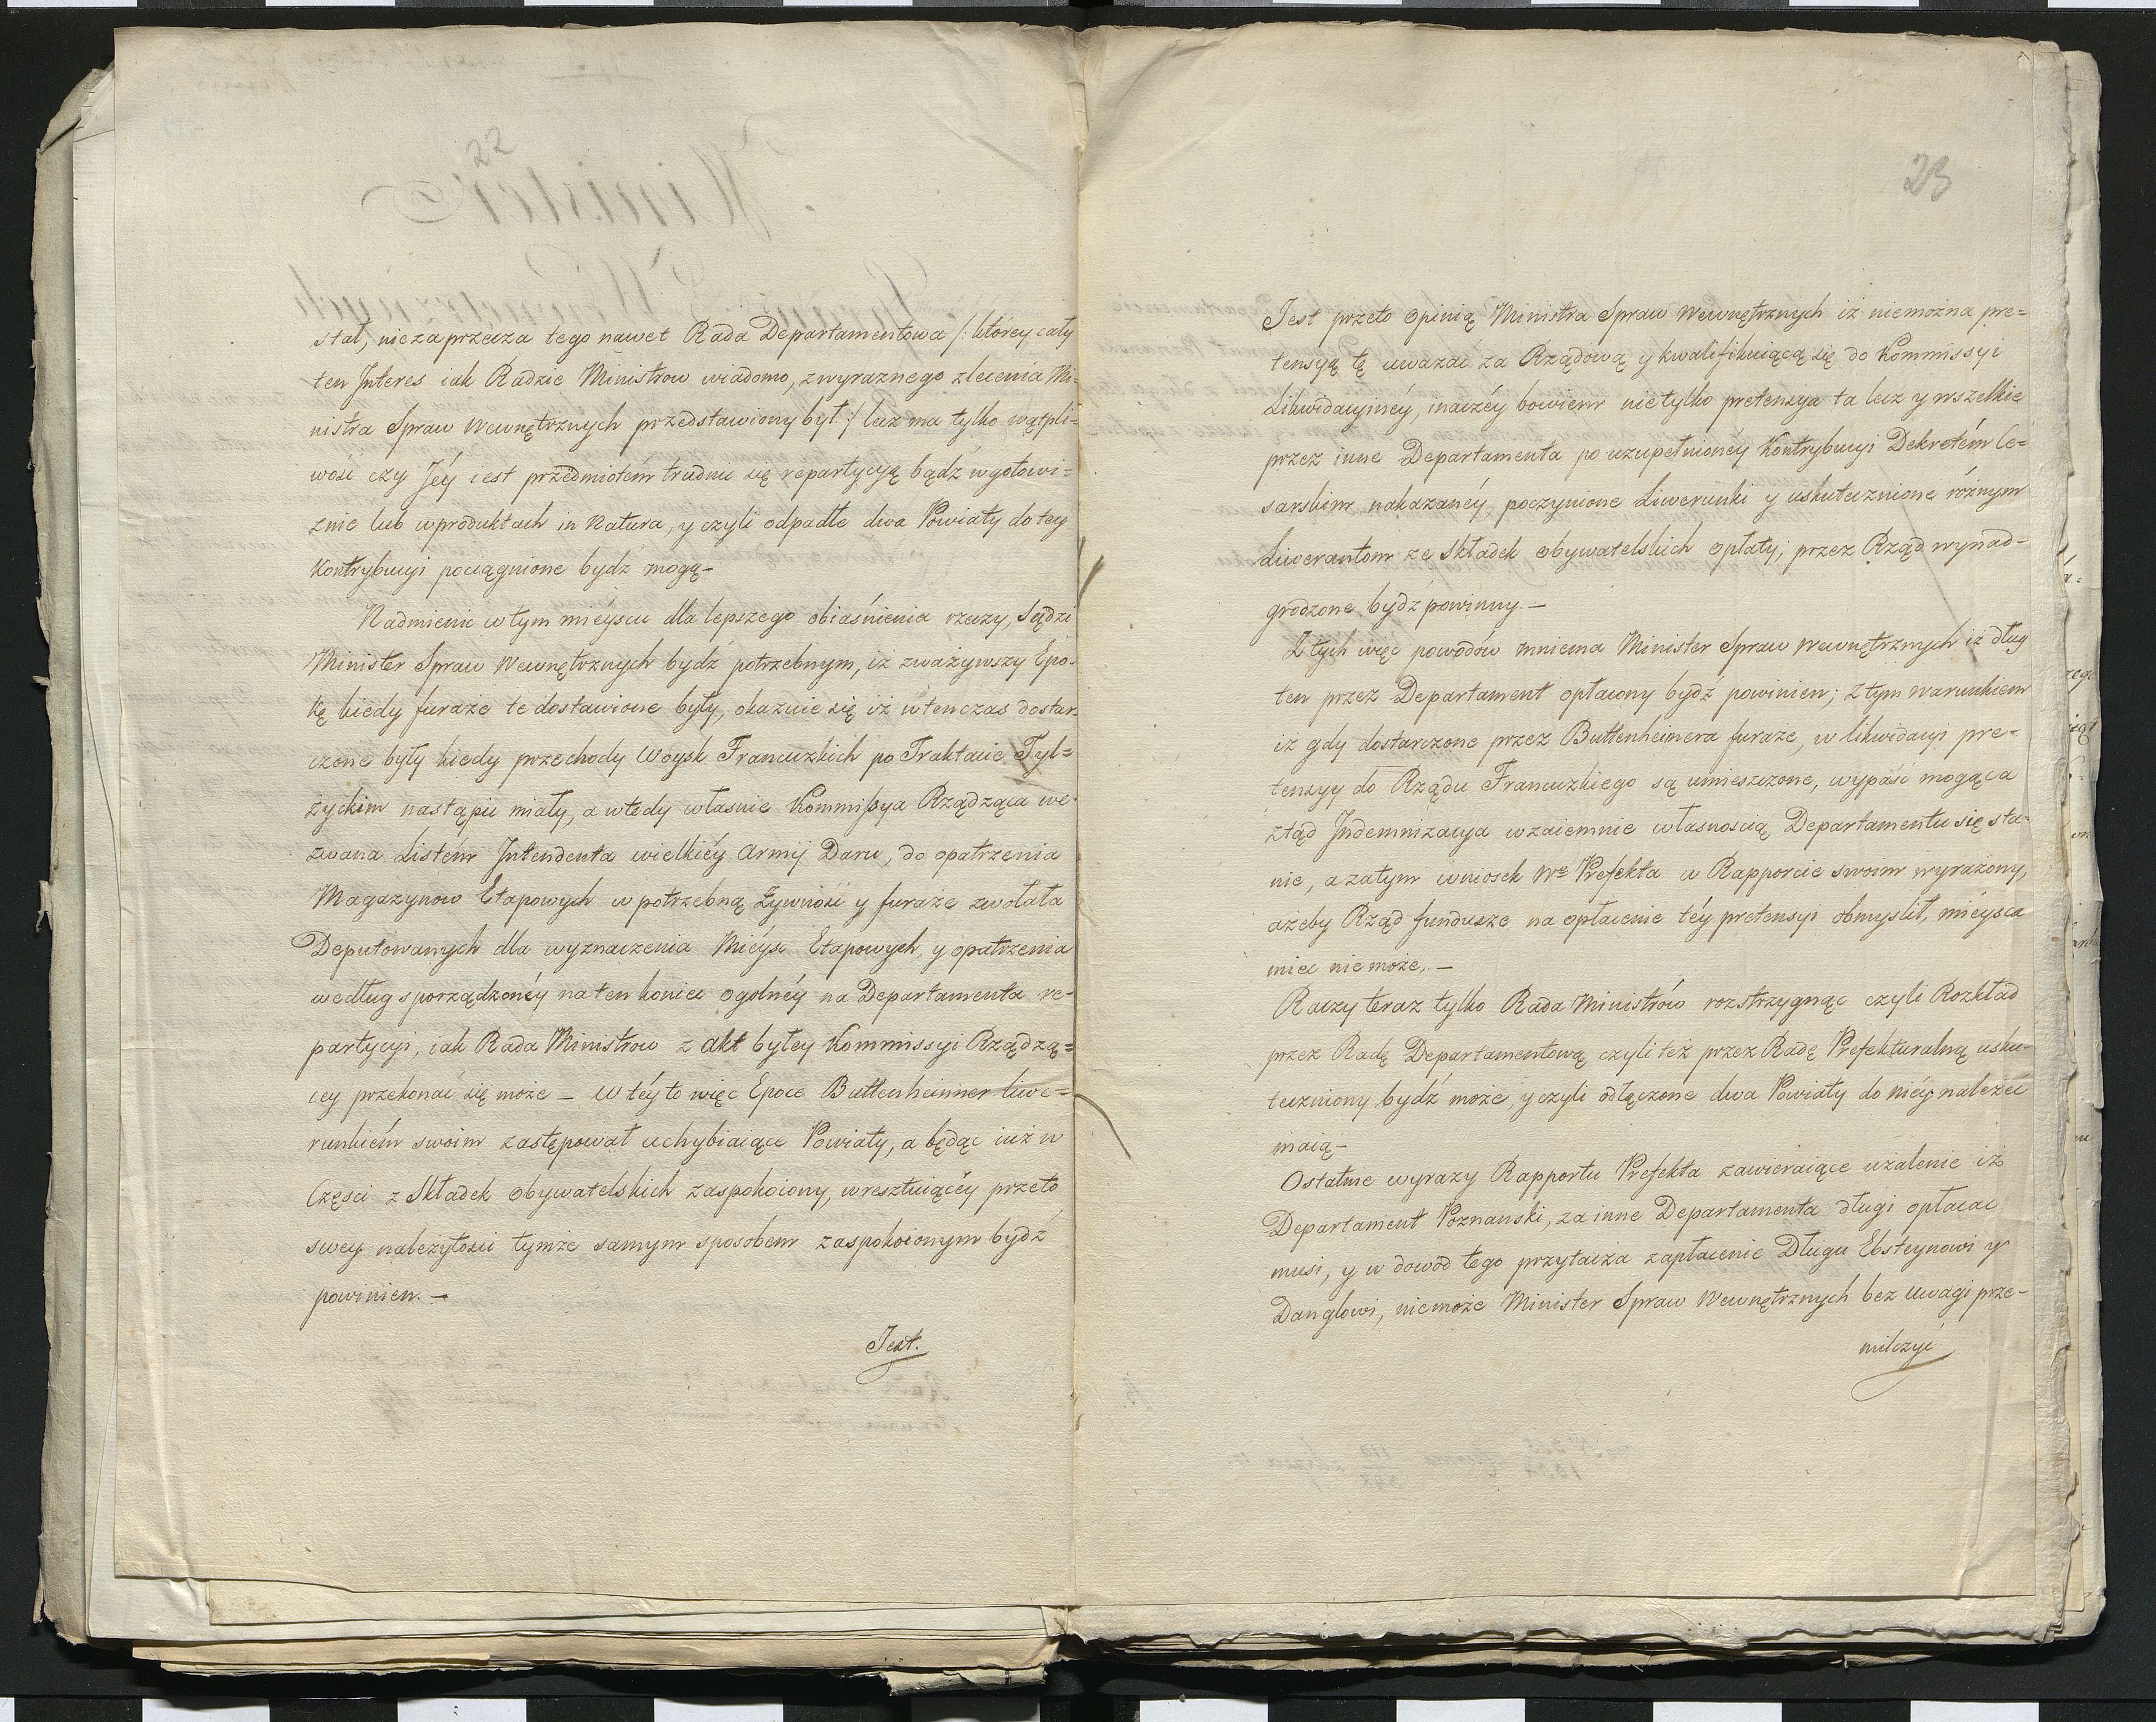 22
stał, niezaprzecza tego nawet Rada Departamentowa /: którey cały
ten Jnteres iak Radzie Ministrow wiadomo, zwyraznego zlecenia Mi=
nistra Spraw Wewnętrznych przedstawiony był :/ lecz ma tylko wątpli=
wość czy Jéy iest przedmiotem trudnić się repartycyą bądź wgotowi=
znie lub wproduktach in Natura, y czyli odpadłe dwa Powiaty do tey
Kontrybucyi pociągnione bydź mogą –
Nadmienić w tym mieyscu dla lepszego obiaśnienia rzeczy, Sądzi
Minister Spraw Wewnętrznych bydź potrzebnym, iż zważywszy Epo-
kę kiedy furaże te dostawione były, okazuie się iż wtenczas dostar=
czone były kiedy przechody Woysk Francuzkich po Traktacie Tyl=
życkim nastąpić miały, a wtedy własnie Kommissya Rządząca we-
zwana Listem Jntendenta wielkiéy Armij Daru, do opatrzenia
Magazynow Etapowych w potrzebną Żywność y furaże zwołała
Deputowanych dla wyznaczenia Mieysc Etapowych, y opatrzenia
według sporządzonéy na ten koniec ogolnéy na Departamenta re-
partycyi, iak Rada Ministrow z akt byłey Kommissyi Rządzą=
cey przekonać się może – W téy to więc Epoce Buttenheimer liwe=
runkiém swoim zastępował uchybiaiące Powiaty, a będąc iuż w
Części z Składek Obywatelskich zaspokoiony, wresztuiącéy przeto
swey należytości tymże samym sposobem zaspokoionym bydź
powinien. –
Jest.
23
Jest przeto Opinią Ministra Spraw Wewnętrznych iż niemożna pre=
tensyą tę uważać za Rządową y kwalifikuiącą się do Kommissyi
Likwidacyinéy, inaczéy bowiem nietylko pretensya ta lecz y wszelkie
przez inne Departamenta po uzupełnionéy Kontrybucyi Dekretém Ce=
sarskim nakazanéy, poczynione Liwerunki y uskutecznione różnym
Liwerantom ze Składek Obywatelskich Opłaty, przez Rząd wynad-
grodzone bydź powinny. –
Z tych więc powodów mniema Minister Spraw Wewnętrznych iż dług
ten przez Departament opłacony bydź powinien; z tym warunkiem
iż gdy dostarczone przez Buttenheimera furaże, w likwidacyi pre-
tensyy do Rządu Francuzkiego są umieszczone, wypaść mogąca
ztąd Jndemnizacya wzaiemnie własnością Departamentu się sta-
nie, a zatym wniosek We Prefekta w Rapporcie swoim wyrażony,
ażeby Rząd fundusze na opłacenie téy pretensyi obmyslił, mieysca
mieć niemoże. –
Raczy teraz tylko Rada Ministrów rozstrzygnąć czyli Rozkład
przez Radę Departamentową czyli też przez Radę Prefekturalną usku-
teczniony bydź może, y czyli odłączone dwa Powiaty do niéy należeć
maią –
Ostatnie wyrazy Rapportu Prefekta zawieraiące użalenie iż
Departament Poznanski, za inne Departamenta długi opłacać
musi, y w dowód tego przytacza zapłacenie Długu Ebsteynowi y
Danglowi, niemoże Minister Spraw Wewnętrznych bez uwagi prze-
milczyć